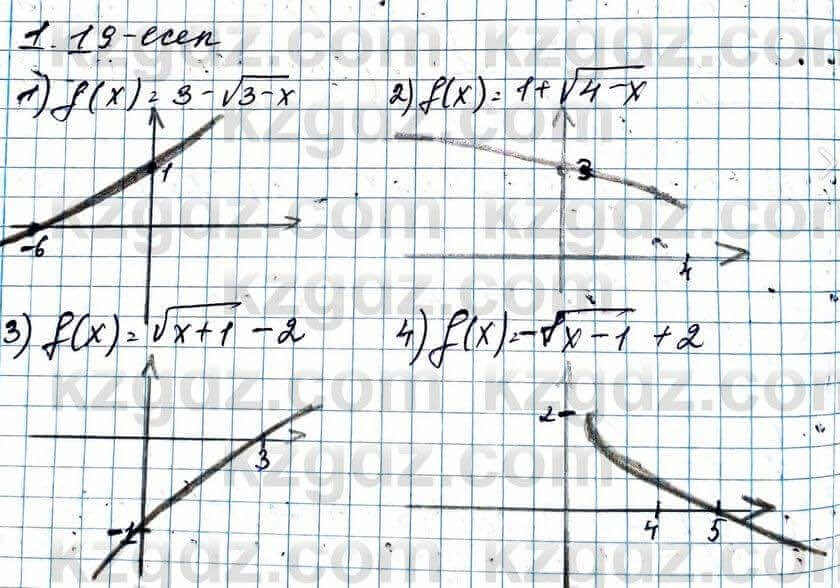 1.19-есеп
1) f(x) = 3 - √(3-x)
2) f(x) = 1 + √(4-x)
1
3
-6
4
3) f(x) = √(x+1) - 2
4) f(x) = -√(x-1) + 2
2
3
-1
4 5
kzgdz.com kzgdz.com
kzgdz.com
kzgdz.com kzgdz.com
kzgdz.com
kzgdz.com kzgdz.com
kzgdz.com
kzgdz.com kzgdz.com